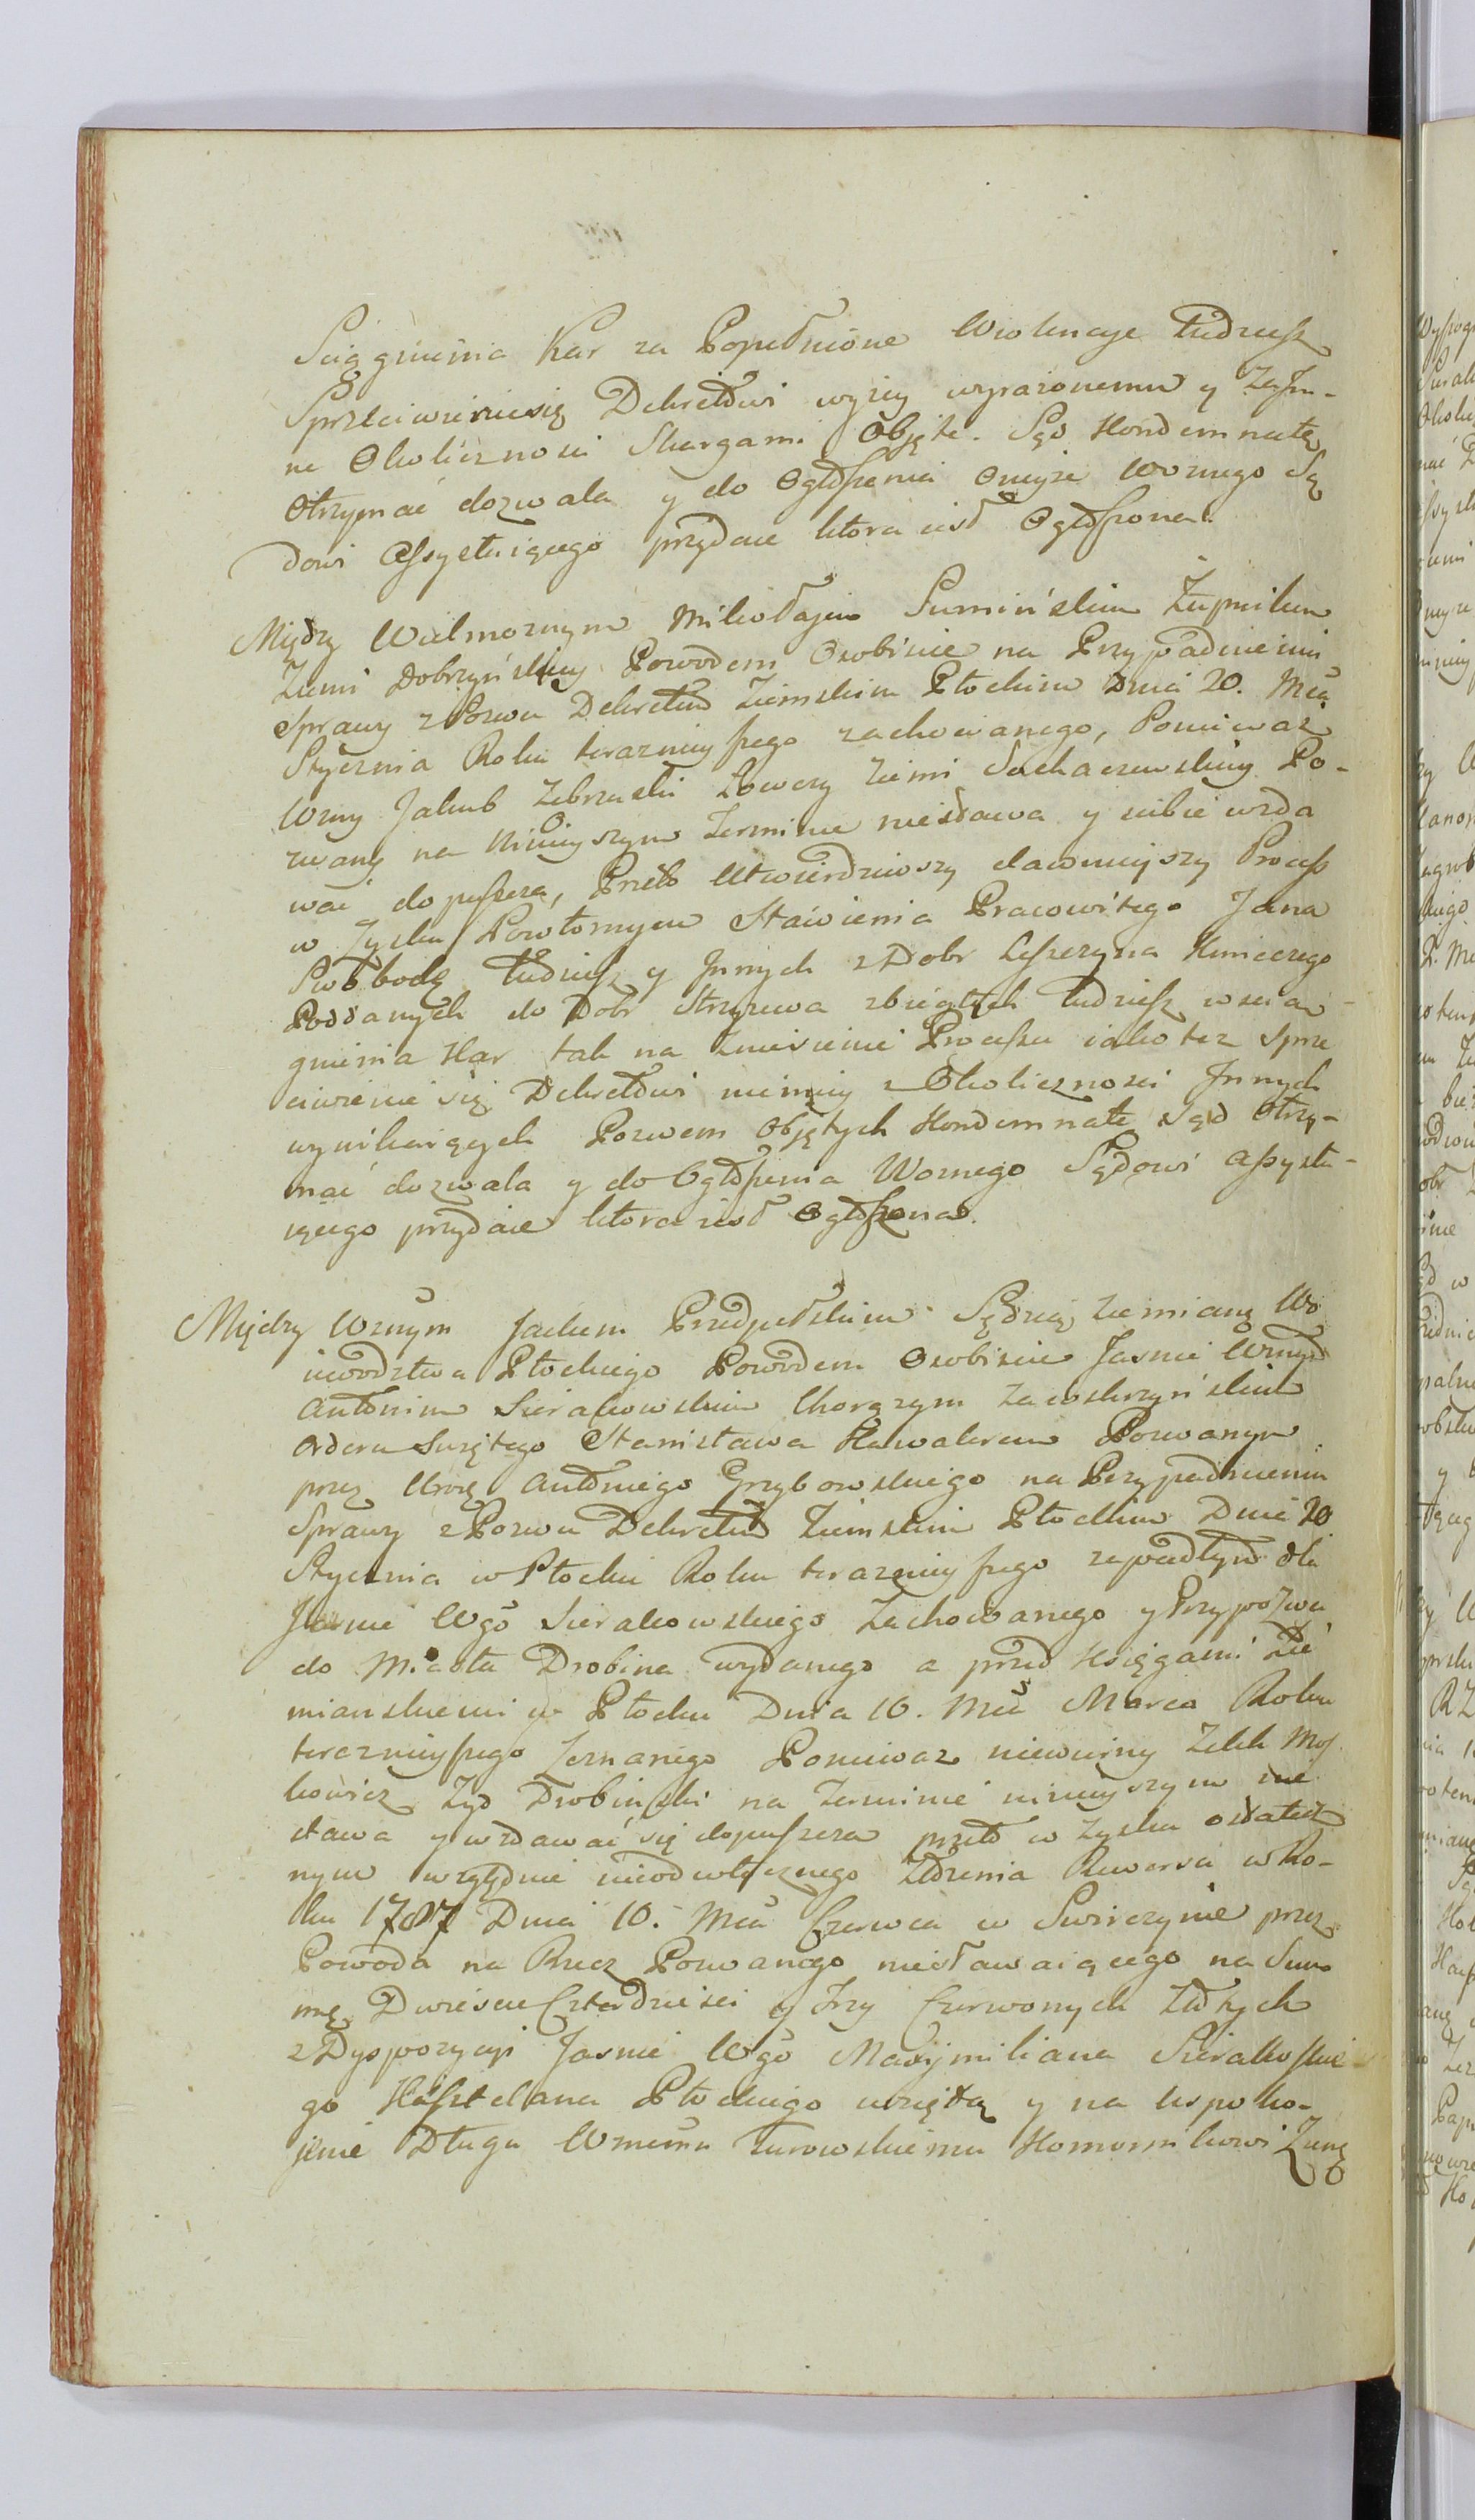 Sciągnienia Kar za Popełnione Wiolencye tudzież
Sprzeciwieniesię Dekretowi wyżey wyrażonemu y
ne Okoliczności Skargami Objęte. Sąd Kondemnatę
Otrzymać dozwala y do Ogłoszenia Oneyże Woznego Są
dowi Assystuiącego przydaie ktora iest Ogłoszona.
Między Wielmoznym Mikołajem Sumińskim Zupnikiem
Ziemi Dobrzyńskiey Powodem Osobiscie na Przypadnieniu
Sprawy z Pozwu Dekretem Ziemskim Płockim Dnia 20. Mca
Stycznia Roku teraznieyszego zachowanego, Poniewaz
Wzny Jakub Zebrzuski Łowczy Ziemi Sochaczewskiey Po-
zwany na Ninieyszym Terminie niestawa y siebie wzda
wać dopuszcza, Przeto Utwierdziwszy dawnieyszy Process
w Zysku Powtornym Stawienia Pracowitego Jana
Swobodę tudzież y Jnnych z Dobr Leszczyna Kmiecego
Poddanych do Dobr Strzyzewa zbiegłych tudzież wscią-
gnienia Kar tak na Zniesienie Processu iako tez Sprze
ciwienie się Dekretowi niemniey z Okoliczności Jnnych
wynikaiących Pozwem Objętych Kondemnatę Sąd Otrzy-
mać dozwala y do Ogłoszenia Woznego Sądowi assystu-
iącego przydaie ktora iest Ogłoszona.
Między Wznym Jackiem Przedpełskim Sędzią Ziemianą Wo
iewodztwa Płockiego Powodem Osobiscie Jasnie Wznym
Antonim Sierakowskim Chorązym Zawskrzyńskim
Orderu Swiętego Stanisława Kawalerem Pozwanym
przez Urog Antoniego Grzybowskiego na Przypadnieniu
Sprawy z Pozwu Dekretem Ziemskim Płockim Dnia 20
Stycznia w Płocku Roku teraznieyszego zapadłym dla
Jasnie Wgo Sierakowskiego Zachowanego y Przypozwu
do Miasta Drobina wydanego a przed Księgami Zie
mianskiemi w Płocku Dnia 10. Mca Marca Roku
teraznieyszego Zeznanego Poniewaz niewierny Zelek Mos
kowicz Zyd Drobinski na Terminie ninieyszym nie
stawa y wzdawać się dopuszcza przeto w Zysku ostatecz
nym względnie nieodwłocznego Złożenia Rewersu w Ro-
ku 1787 Dnia 10. Mca Czerwca w Swierczynie przez
Powoda na Rzecz Pozwanego niestawaiącego na Sum
mę Dwiescie Czterdziesci y Trzy Czerwonych Złotych
z Dyspozycyi Jasnie Wgo Maxymiliana Sierakowskie-
go Kasztelana Płockiego wziętą y na uspoko-
jenie Długu Wznemu Turowskiemu Komornikowi